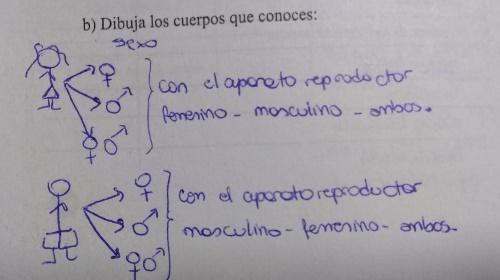 b) Dibuja los cuerpos que conoces:
sexo
♀
♂
♀♂
con el aparato reproductor
femenino - masculino - ambos.
♀
♂
♀♂
con el aparato reproductor
masculino - femenino - ambos.